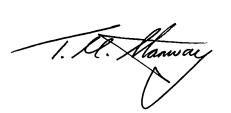 T. M. Stanway